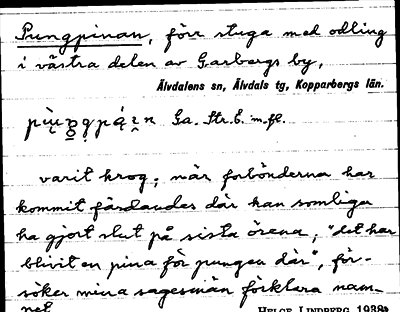 Pungpinan, förr stuga med odling
i västra delen av Garbergs by,
Älvdalens sn, Älvdals tg, Kopparbergs län.
Ga. Str. E. m. fl.
varit krog; när forbönderna har
kommit färdandes där kan somliga
ha gjort slut på sista örena; "det har
blivit en pina för pungen där", för-
söker mina sagesmän förklara nam-
net.
HELGE LINDBERG 1938